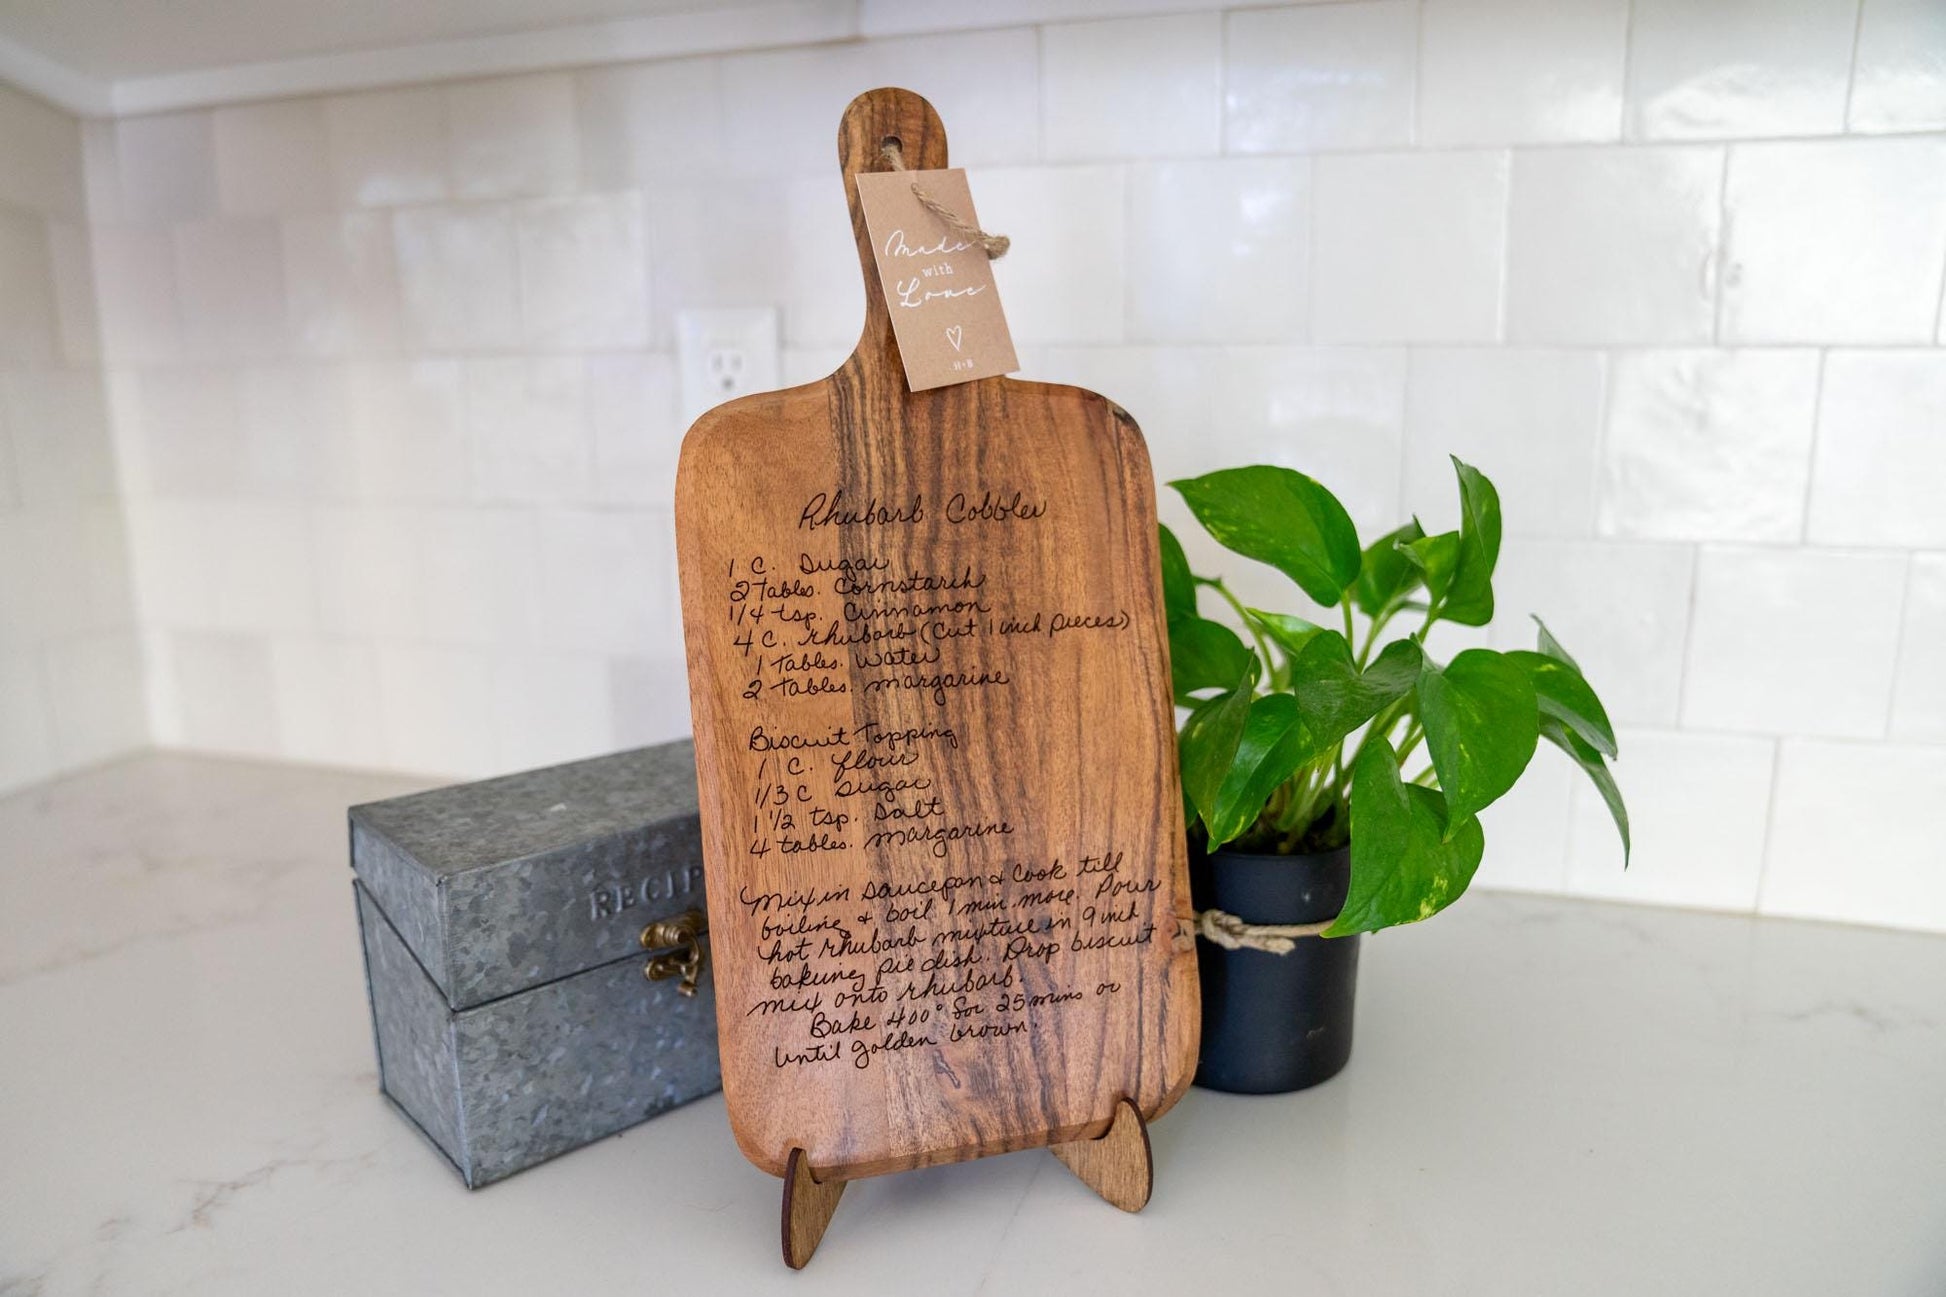 Made
with
Love
H+B
Rhubarb Cobbler
1 C. Sugar
2 Tables. Cornstarch
1/4 tsp. Cinnamon
4 C. rhubarb (Cut 1 inch pieces)
1 Tables. Water
2 Tables. margarine
Biscuit Topping
1 C. flour
1/3 C Sugar
1 1/2 tsp. Salt
4 tables. margarine
Mix in saucepan & Cook till
boiling & boil 1 min. more. Pour
hot rhubarb mixture in 9 inch
baking pie dish. Drop biscuit
mix onto rhubarb.
Bake 400° for 25 mins or
until golden brown.
RECIP